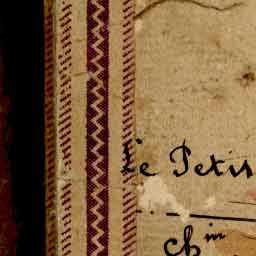 Le Petis
ch in